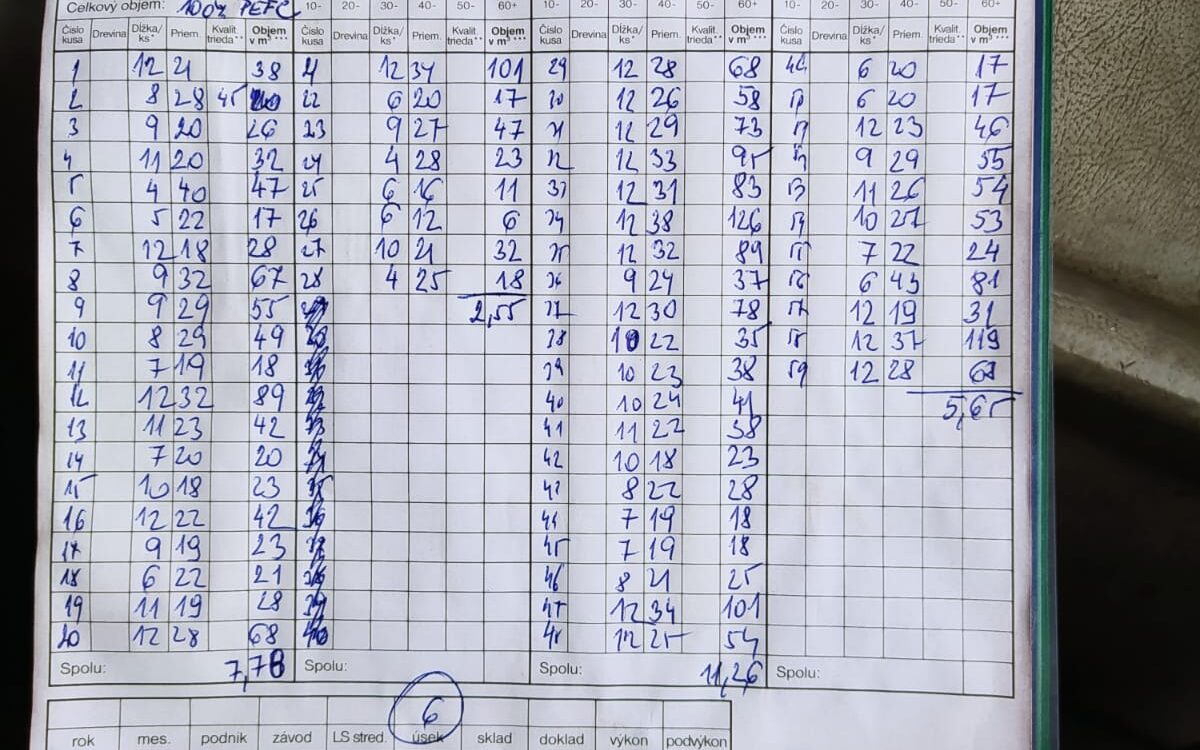 Celkový objem: 100% PEFC 10- 20- 30- 40- 50- 60+ 10- 20- 30- 40- 50- 60+
Číslo kusa Drevina Dĺžka/ks* Priem. Kvalit. trieda** Objem v m³*** Číslo kusa Drevina Dĺžka/ks* Priem. Kvalit. trieda** Objem v m³*** Číslo kusa Drevina Dĺžka/ks* Priem. Kvalit. trieda** Objem v m³*** Číslo kusa Drevina Dĺžka/ks* Priem. Kvalit. trieda** Objem v m³***
1 12 21 38 12 34 101 29 12 28 68 6 20 17
2 8 28 45 22 6 20 17 30 12 26 58 6 20 17
3 9 20 26 23 9 27 47 31 12 29 73 12 23 46
4 11 20 32 24 4 28 23 32 12 33 95 9 29 55
5 4 40 47 25 6 16 11 33 12 31 83 53 11 26 54
6 5 22 17 26 6 12 6 34 12 38 126 54 10 27 53
7 12 18 28 27 10 21 32 35 12 32 89 55 7 22 24
8 9 32 67 28 4 25 18 36 9 24 37 56 6 43 81
9 9 29 55 2,55 37 12 30 78 57 12 19 31
10 8 29 49 38 10 22 35 58 12 37 119
11 7 19 18 39 10 23 38 59 12 28 68
12 12 32 89 40 10 24 41 5,65
13 11 23 42 41 11 22 38
14 7 20 20 42 10 18 23
15 10 18 23 43 8 22 28
16 12 22 42 44 7 19 18
17 9 19 23 45 7 19 18
18 6 22 21 46 8 21 25
19 11 19 28 47 12 34 101
20 12 28 68 48 12 25 54
Spolu: 7,78 Spolu: Spolu: 11,26 Spolu:
6
rok mes. podnik závod LS stred. úsek sklad doklad výkon podvýkon